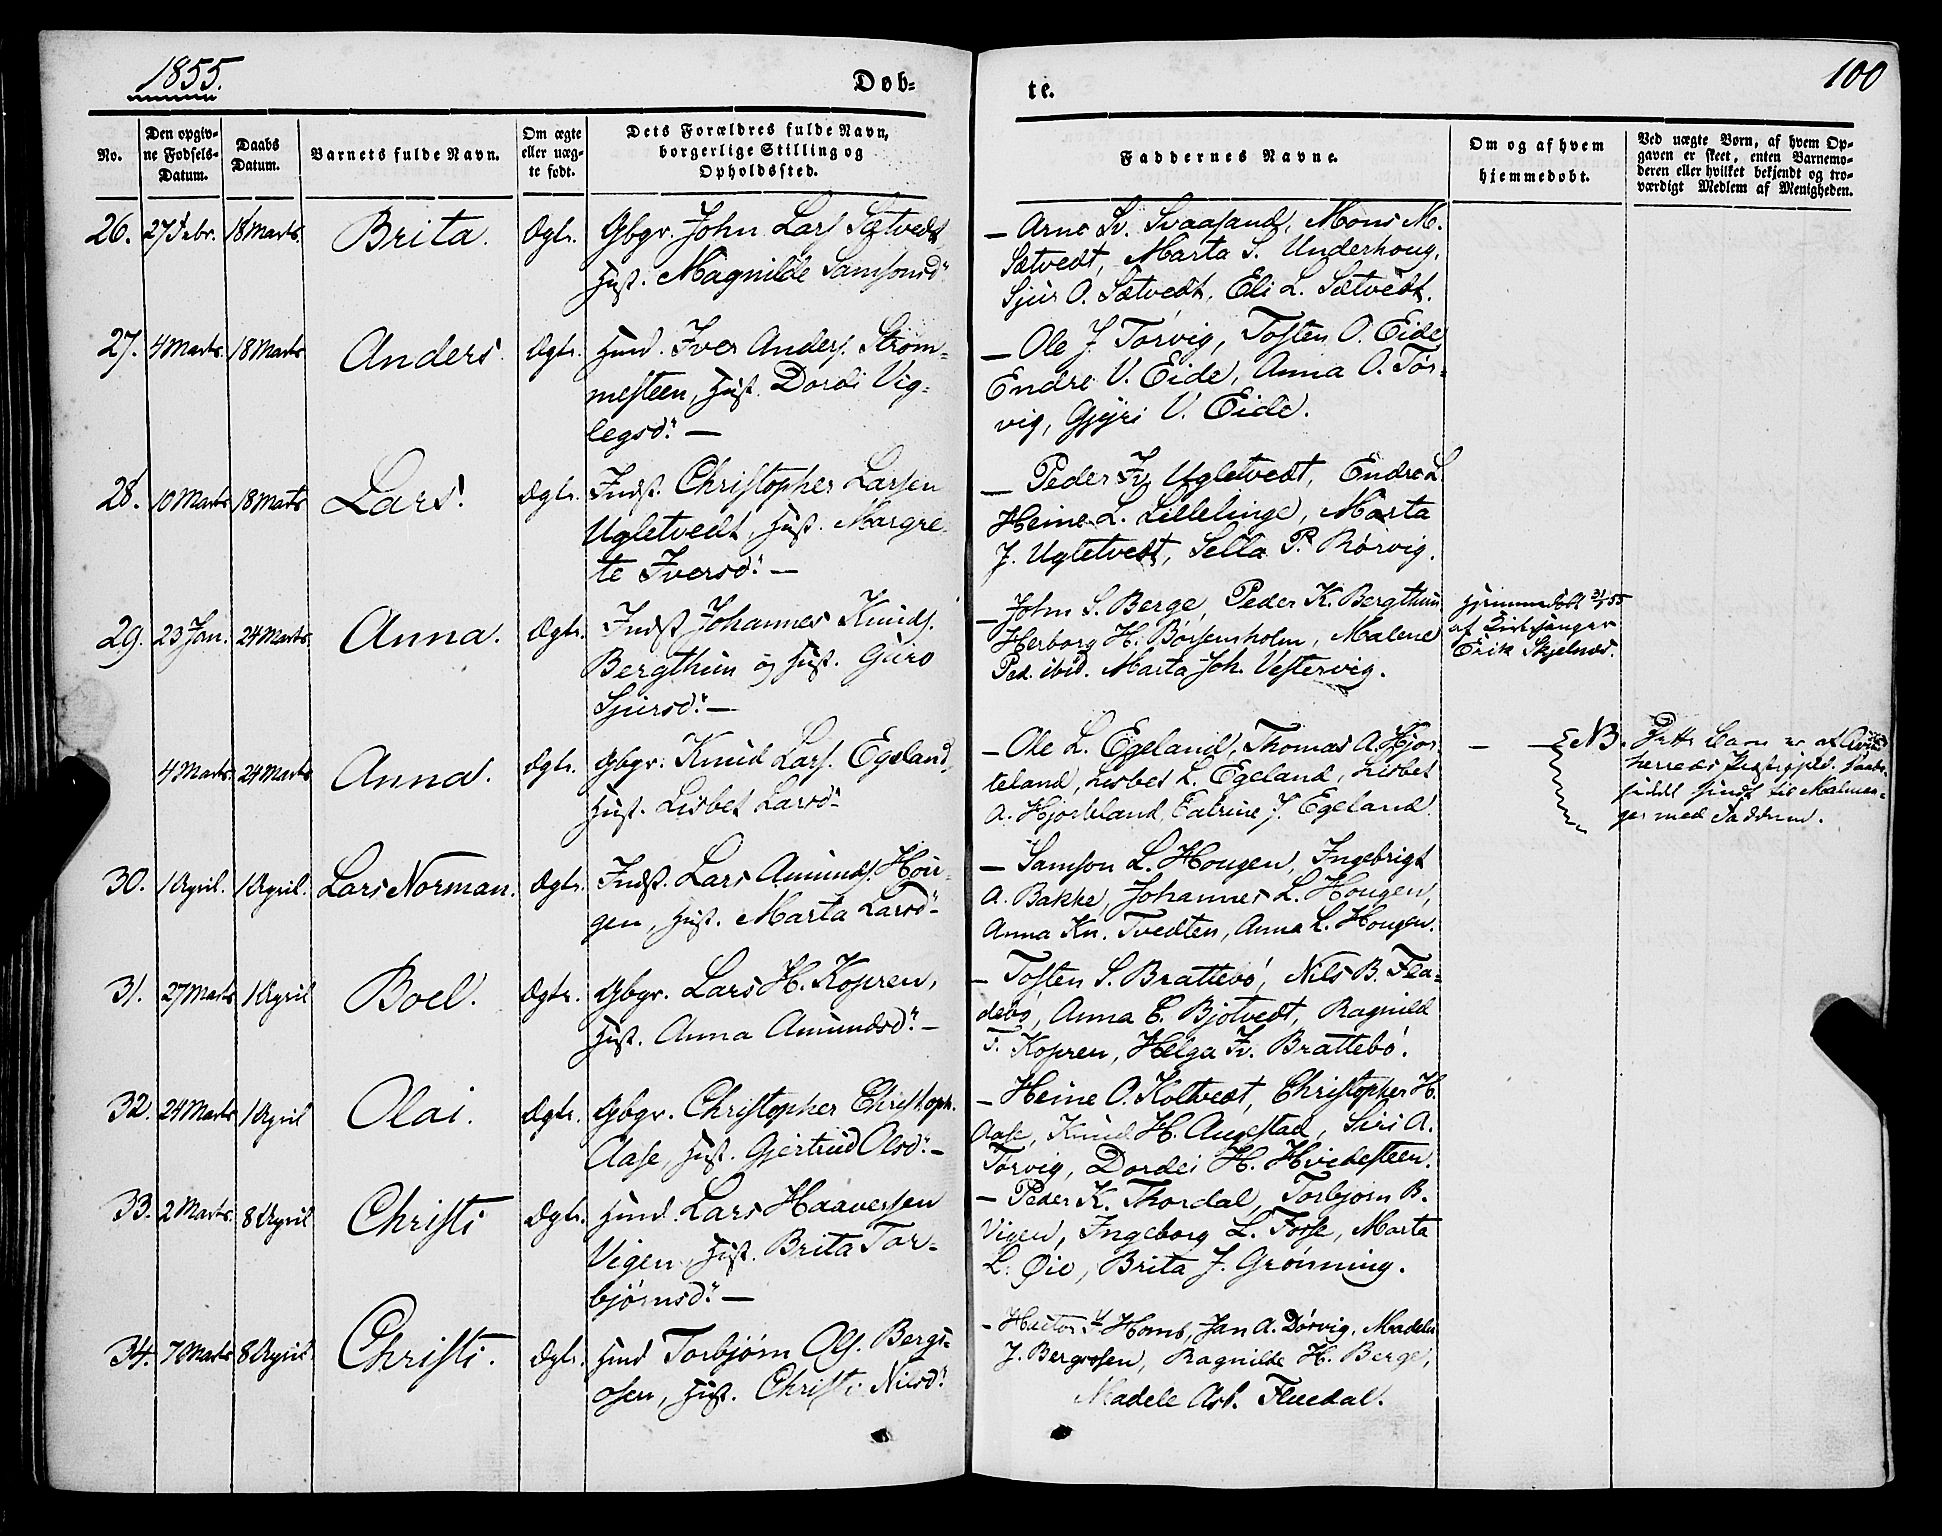 1855.
Døb-
te.
100
No.
Den opgiv-
ne Fødsels-
Datum.
Daabs
Datum.
Barnets fulde Navn.
Om ægte
eller uæg-
te født.
Dets Forældres fulde Navn,
borgerlige Stilling og
Opholdssted.
Faddernes Navne.
Om og af hvem
hjemmedøbt.
Ved uægte Børn, af hvem Op-
gaven er skeet, enten Barnemo-
deren eller hvilket bekjendt og tro-
værdigt Medlem af Menigheden.
26. 27 Febr. 18 Marts. Brita. Ægte. Gbgr. John Lars. Sætvedt,
Hust. Magnilde Samsonsd.
— Arne Sv. Svaasand, Mons M.
Sætvedt, Marta S. Underhoug,
Sjur O. Sætvedt, Eli L. Sætvedt.
27. 4 Marts. 18 Marts Anders. Ægte. Hmd. Iver Anders. Strøm-
mesteen, Hust. Dordi Vig-
legsd. —
— Ole J. Tørvig, Tosten O. Eide
Endre V. Eide, Anna O. Tør-
vig, Gjyri V. Eide.
28. 10 Marts 18 Marts Lars. Ægte. Indst. Christopher Larsen
Ugletvedt, Hust. Margre-
te Iversd. —
— Peder Iv. Ugletvedt, Endre L.
Heine L. Lillelinge, Marta
J. Ugletvedt, Sella P. Rørvig.
29. 23 Jan. 24 Marts. Anna. Ægte. Indst Johannes Knuds.
Bergthun og Hust. Guro
Sjursd. —
— John S. Berge, Peder K. Bergthun
Herborg H. Børsensholm, Malene
Ped. ibid. Marta Joh. Vestervig.
Hjemmedøbt
af Kirkesanger
Erik Skjelnæs.
4 Marts. 24 Marts Anna. Ægte. Gbgr. Knud Lars. Egeland,
Hust. Lisbet Larsd.
— Ole L. Egeland, Thomas A. Hjor-
teland, Lisbet L. Egeland, Lisbet
A. Hjorteland, Catrine J. Egeland.
— NB. Dette Barn er af
herreds Præstegjeld.
til Malman-
ger med Faddere.
30. 1 April. 1 April. Lars Norman. Ægte. Indst. Lars Amunds. Hou-
gen, Hust. Marta Larsd.
— Samson L. Hougen, Ingebrigt
A. Bakke, Johannes L. Hougen,
Anna Kn. Tvedten, Anna L. Hougen.
31. 27 Marts 1 April Boel. Ægte. Gbgr. Lars H. Kopren,
Hust. Anna Amundsd. —
— Tosten S. Brattebø, Nils B. Fla-
debø, Anna E. Bjotvedt, Ragnild
T. Kopren, Helga Iv. Brattebø.
32. 24 Marts 1 April Olai. Ægte. Gbgr. Christopher Christoph.
Aase, Hust. Gjertrud Olsd. —
— Heine O. Koltvedt, Christopher H.
Aase, Knud H. Augestad, Siri A.
Tørvig, Dordei H. Hvidesteen.
33. 2 Marts. 8 April Christi Ægte. Hmd. Lars Haaversen
Vigen, Hust. Brita Tor-
bjørnsd. —
— Peder K. Thordal, Torbjørn B.
Vigen, Ingeborg L. Fosse, Marta
L. Øie, Brita J. Grønning.
34. 7 Marts 8 April Christi. Ægte. Hmd Torbjørn Ols. Bergs-
osen, Hust. Christi Nilsd.
— Hector Homb, Jan A. Dørvig, Madele
J. Bergsosen, Ragnilde H. Berge,
Madele Asl. Fluedal.